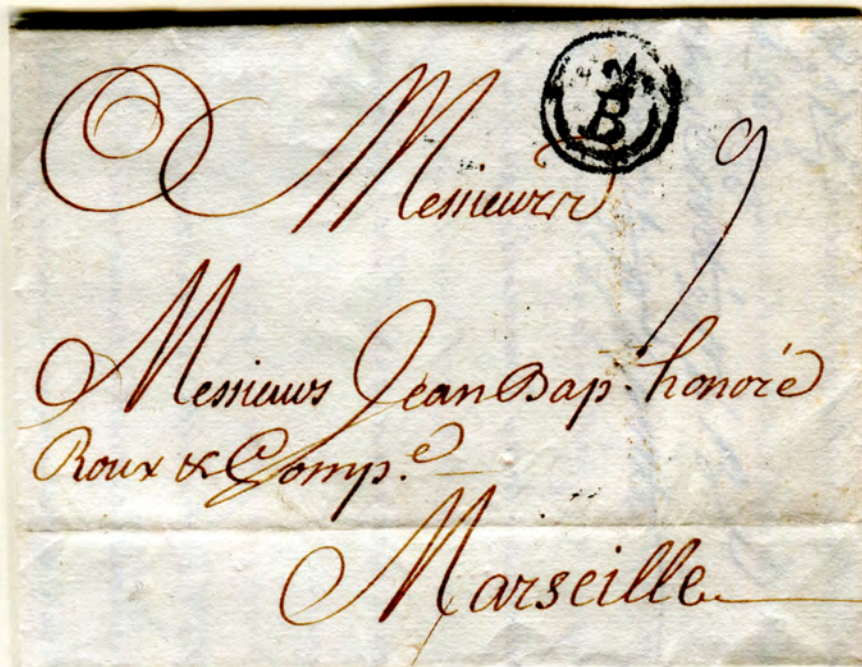 B
9
Messieurs
Messieurs Jean Bap. honoré
Roux & Comp.e
Marseille